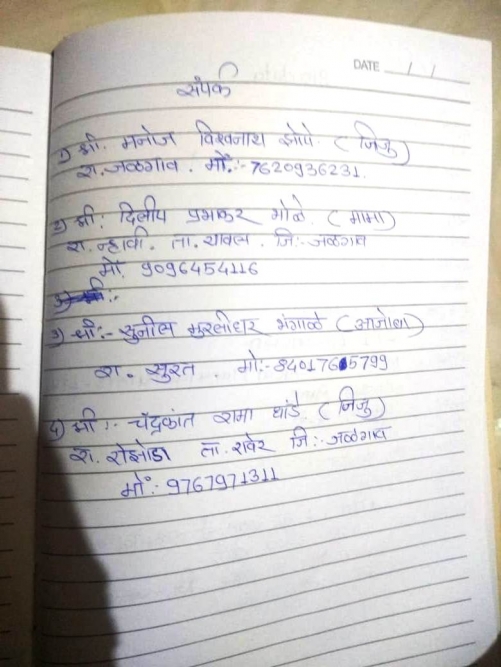 DATE __/__/__
संपर्क
१) श्री. मनोज विश्वनाथ झोपे. (जिजु)
रा. जळगाव. मो.:- 7620936231.
२) श्री. दिलीप प्रभाकर भोळे. (मामा)
रा. न्हावी. ता. यावल. जि:- जळगाव
मो. 9096454116
३) श्री:-
३) श्री:- सुनील मुरलीधर भंगाळे (आजोबा)
रा. सुरत. मो:- 8401765799
४) श्री:- चंद्रकांत रामा धांडे. (जिजु)
रा. रोझोडा ता. रावेर जि:- जळगाव
मो:- 9767971311